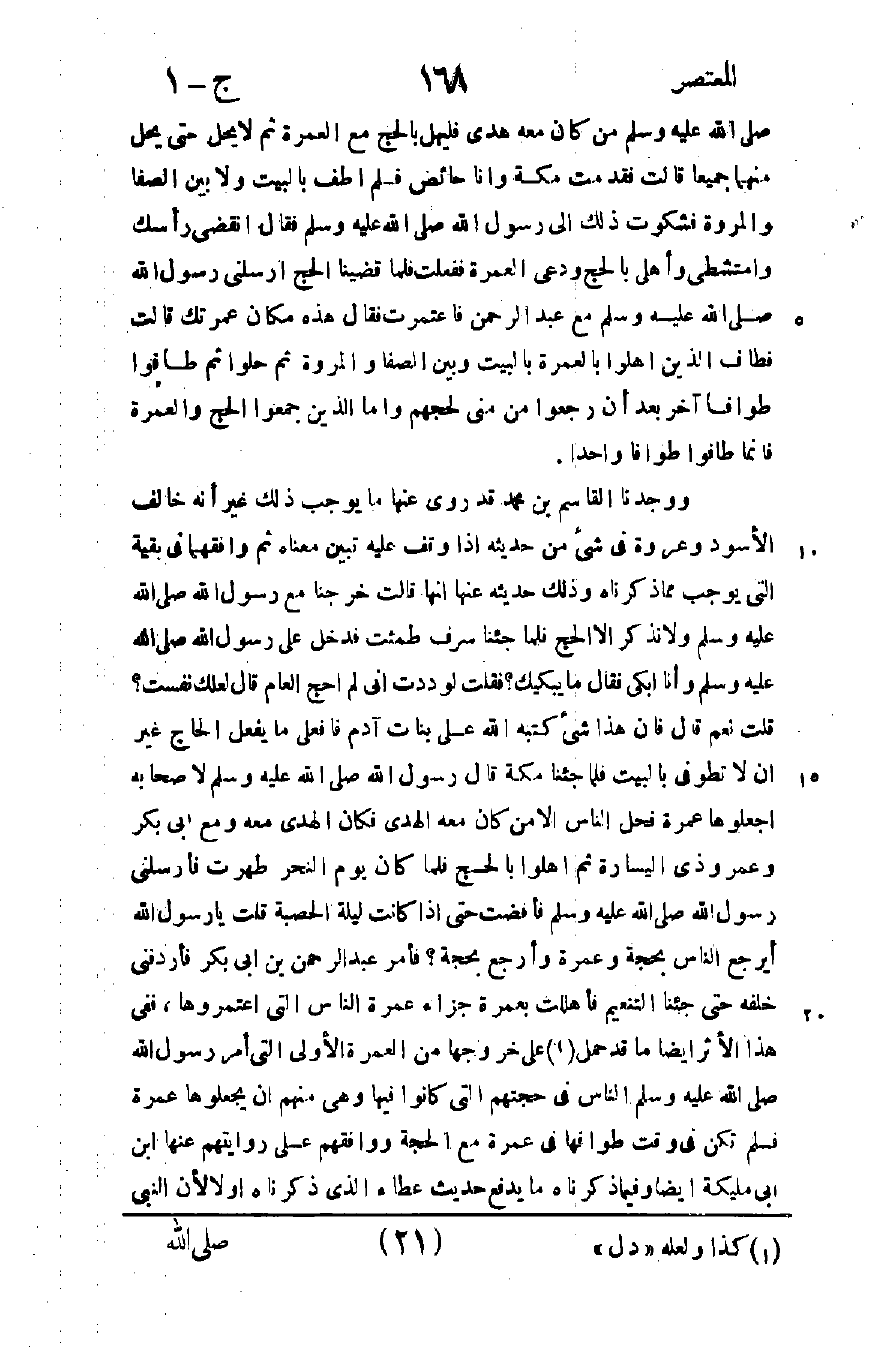 المعتصر ١٦٨ ج - ١
صلى الله عليه وسلم من كان معه هدى فليهل بالحج مع العمرة ثم لا يحل حتى يحل
منهما جميعا قالت فقدمت مكة وانا حائض فلم اطف بالبيت ولا بين الصفا
والمروة فشكوت ذلك الى رسول الله صلى الله عليه وسلم فقال انقضى رأسك
وامتشطى وأهلى بالحج ودعى العمرة ففعلت فلما قضينا الحج ارسلنى رسول الله
٥ صلى الله عليه وسلم مع عبد الرحمن فاعتمرت فقال هذه مكان عمرتك قالت
فطاف الذين اهلوا بالعمرة بالبيت وبين الصفا والمروة ثم حلوا ثم طافوا
طوافا آخر بعد أن رجعوا من منى لحجهم واما الذين جمعوا الحج والعمرة
فانما طافوا طوافا واحدا .
ووجدنا القاسم بن محمد قد روى عنها ما يوجب ذلك غير أنه خالف
١٠ الأسود وعروة فى شئ من حديثه اذا وقف عليه تبين معناه ثم وافقهما فى بقية
التى يوجب مما ذكرناه وذلك حديثه عنها انها قالت خرجنا مع رسول الله صلى الله
عليه وسلم ولا نذكر الا الحج فلما جئنا سرف طمئت فدخل على رسول الله صلى الله
عليه وسلم وأنا ابكى فقال ما يبكيك؟ فقلت لوددت انى لم احج العام قال لعلك نفست؟
قلت نعم قال فان هذا شئ كتبه الله على بنات آدم فافعلى ما يفعل الحاج غير
١٥ ان لا تطوفى بالبيت فلما جئنا مكة قال رسول الله صلى الله عليه وسلم لاصحابه
اجعلوها عمرة فحل الناس الا من كان معه الهدى فكان الهدى معه ومع ابى بكر
وعمر وذى اليسارة ثم اهلوا بالحج فلما كان يوم النحر طهرت فأرسلنى
رسول الله صلى الله عليه وسلم فأفضت حتى اذا كانت ليلة الحصبة قلت يا رسول الله
أيرجع الناس بحجة وعمرة وأرجع بحجة؟ فأمر عبد الرحمن بن ابى بكر فأردفنى
٢٠ خلفه حتى جئنا التنعيم فأهللت بعمرة جزاء عمرة الناس التى اعتمروها، ففى
هذا الأثر ايضا ما قد حمل (١) على خروجها من العمرة الأولى التى أمر رسول الله
صلى الله عليه وسلم الناس فى حجتهم التى كانوا فيها وهى منهم ان يجعلوها عمرة
فلم تكن فى وقت طوافها فى عمرة مع الحجة ووافقهم على روايتهم عنها ابن
ابى مليكة ايضا وفيما ذكرناه ما يدفع حديث عطاء الذى ذكرناه اولا لأن النبى
(١) كذا ولعله «دل» (٢١) صلى الله